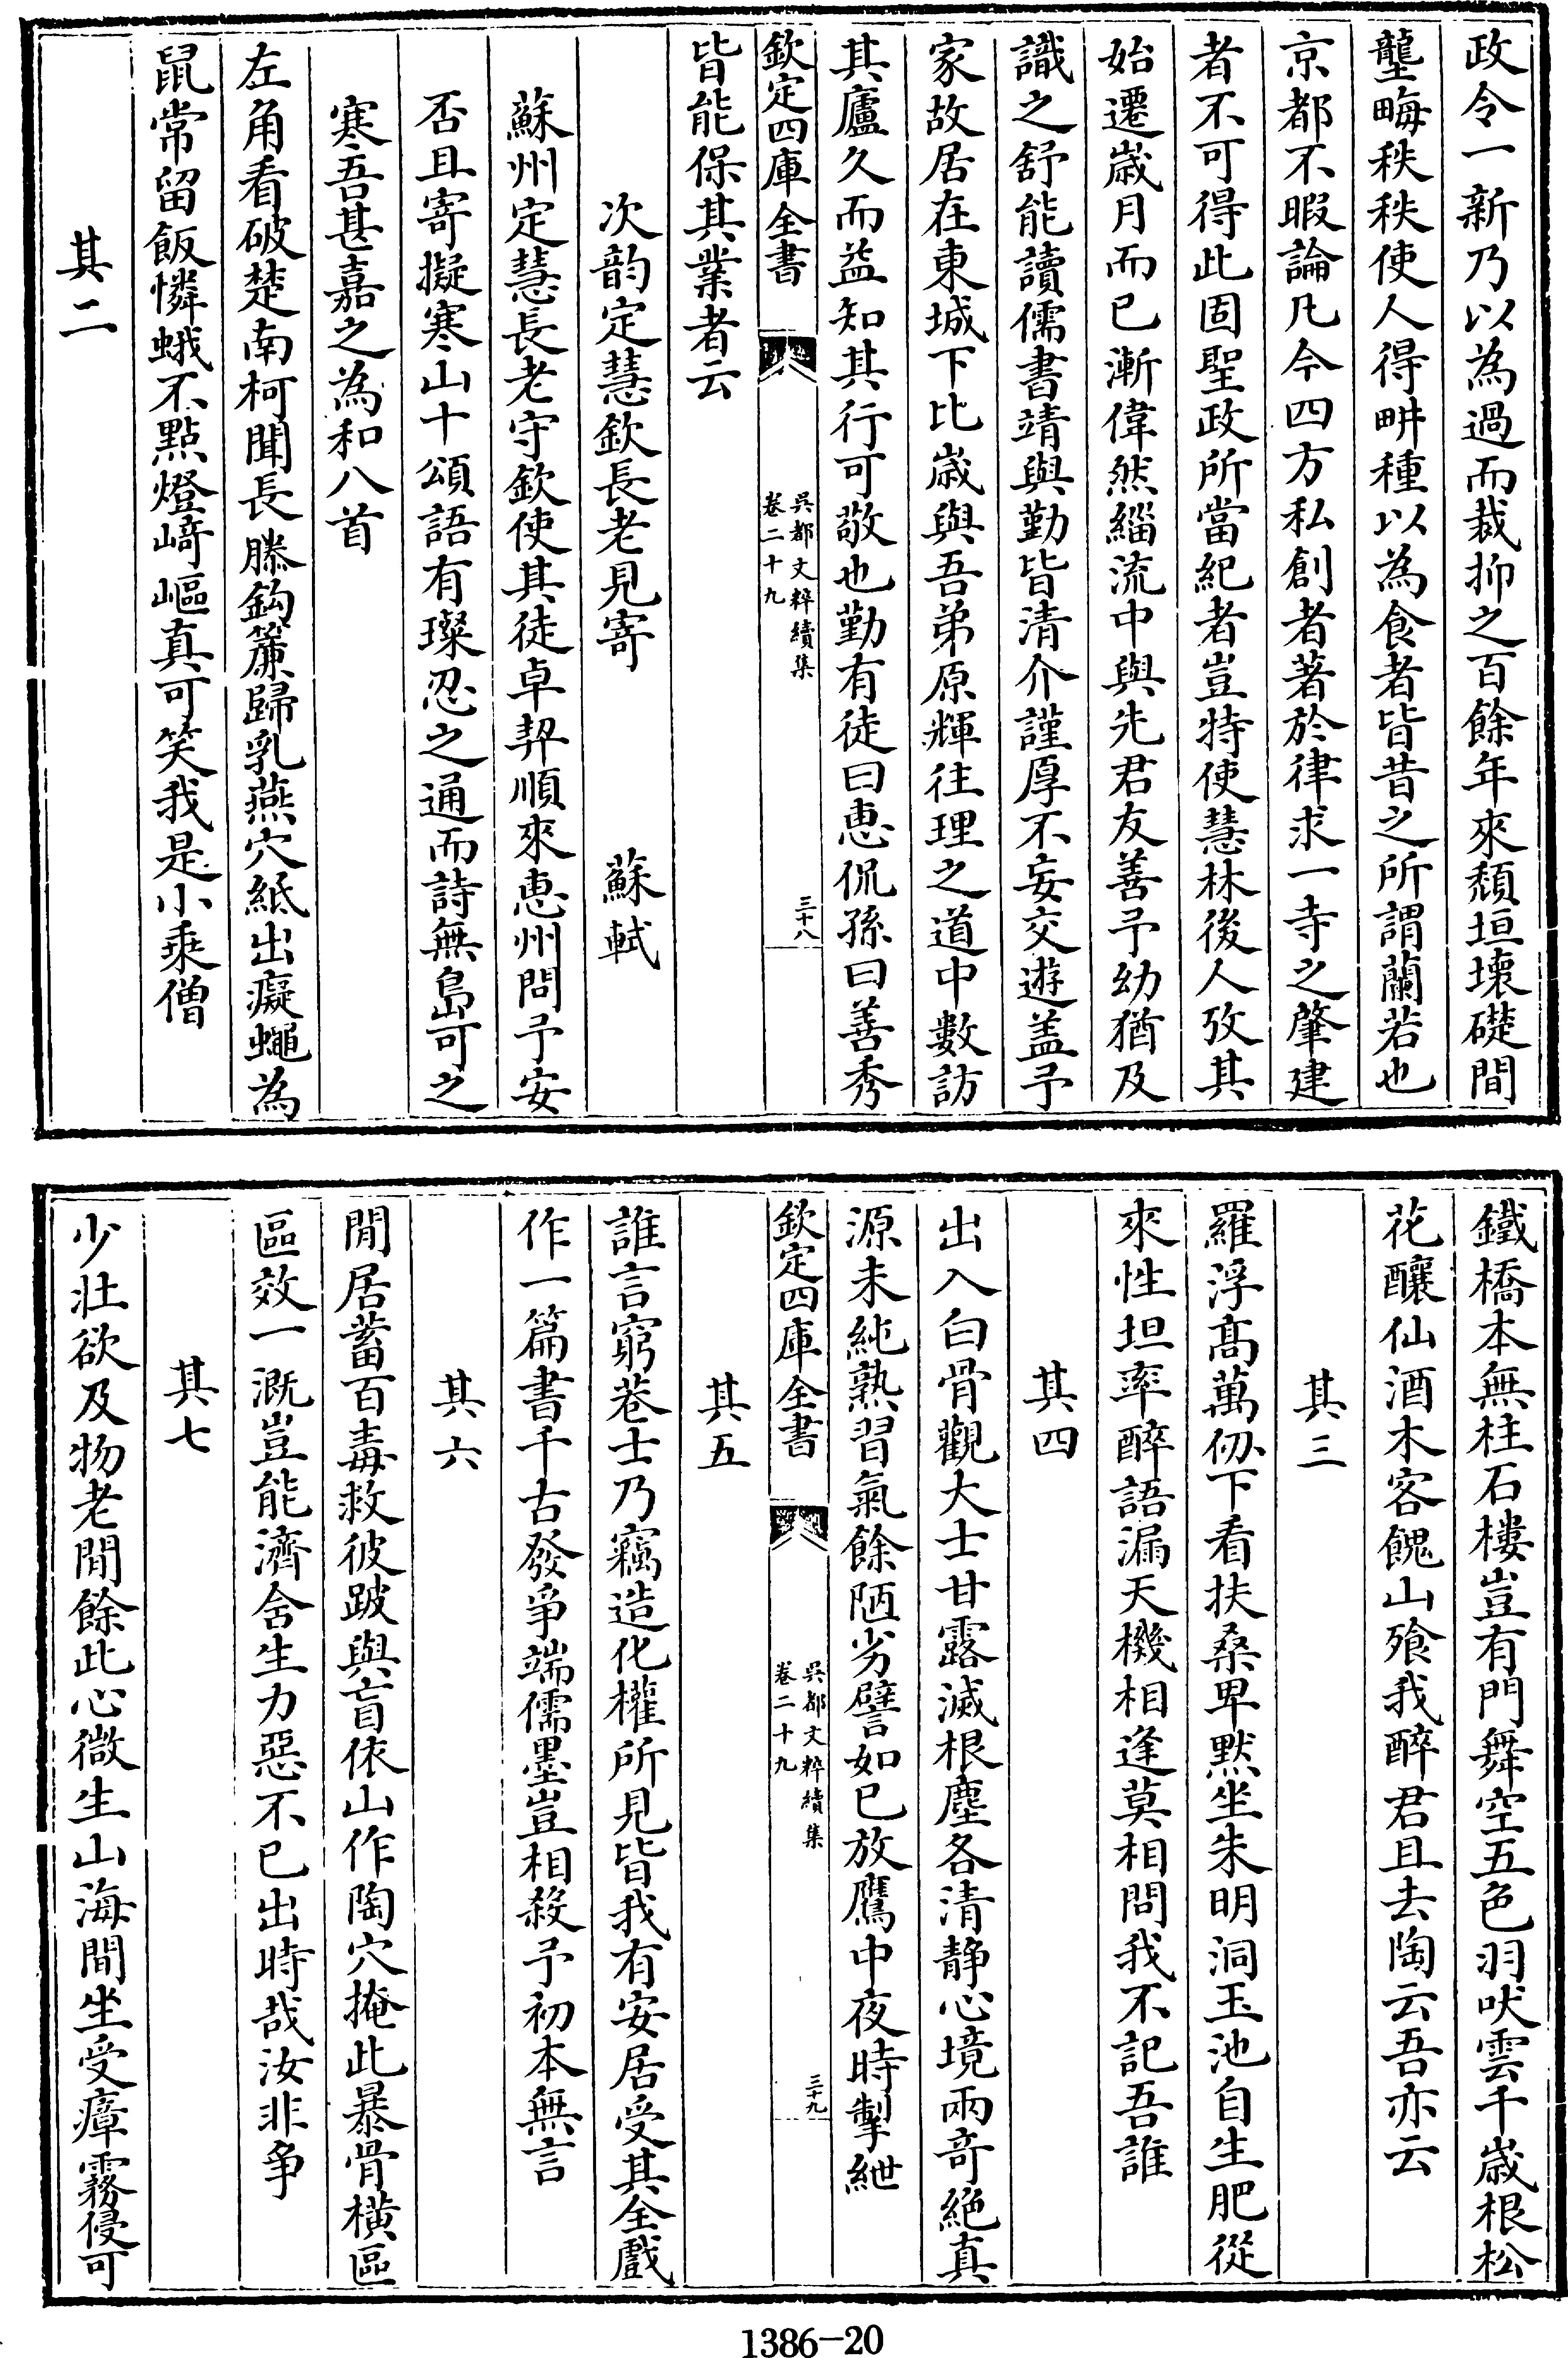 政令一新乃以為過而裁抑之百餘年來頽垣壞礎間
壟畮秩秩使人得畊種以為食者皆昔之所謂蘭若也
京都不暇論凡今四方私創者著於律求一寺之肇建
者不可得此固聖政所當紀者豈特使慧林後人攷其
始遷歲月而已漸偉然緇流中與先君友善予幼猶及
識之舒能讀儒書靖與勤皆清介謹厚不妄交遊盖予
家故居在東城下比歲與吾弟原輝往理之道中數訪
其廬久而益知其行可敬也勤有徒曰恵侃孫曰善秀
欽定四庫全書
吳都文粹續集
卷二十九
三十八
皆能保其業者云
次韵定慧欽長老見寄
蘇軾
蘇州定慧長老守欽使其徒卓契順來恵州問予安
否且寄擬寒山十頌語有璨忍之通而詩無島可之
寒吾甚嘉之為和八首
左角看破楚南柯聞長滕鈎簾歸乳燕穴紙出癡蠅為
鼠常留飯憐蛾不點燈﨑嶇真可笑我是小乘僧
其二
鐵橋本無柱石樓豈有門舞空五色羽吠雲千歲根松
花釀仙酒木客餽山飱我醉君且去陶云吾亦云
其三
羅浮髙萬仞下看扶桑卑黙坐朱明洞玉池自生肥從
來性坦率醉語漏天機相逢莫相問我不記吾誰
其四
出入白骨觀大士甘露滅根塵各清静心境兩竒絶真
源未純熟習氣餘陋劣譬如已放鷹中夜時掣紲
欽定四庫全書
吳都文粹續集
卷二十九
三十九
其五
誰言窮巷士乃竊造化權所見皆我有安居受其全戲
作一篇書千古發爭端儒墨豈相殺予初本無言
其六
閒居蓄百毒救彼跛與盲依山作陶穴掩此暴骨橫區
區效一溉豈能濟含生力惡不已出時哉汝非爭
其七
少壯欲及物老閒餘此心微生山海間坐受瘴霧侵可
1386-20